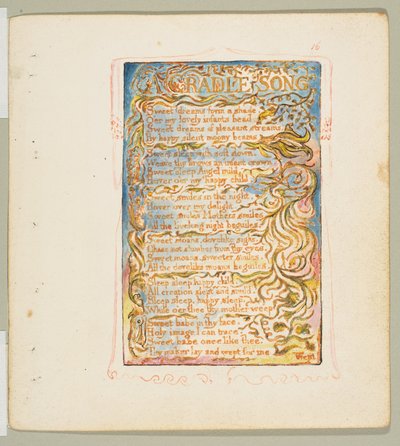 16
A CRADLE SONG
Sweet dreams form a shade
O'er my lovely infants head.
Sweet dreams of pleasant streams,
By happy silent moony beams
Sweet sleep with soft down,
Weave thy brows an infant crown.
Sweet sleep Angel mild,
Hover o'er my happy child.
Sweet smiles in the night,
Hover over my delight.
Sweet smiles Mothers smiles
All the livelong night beguiles.
Sweet moans, dovelike sighs,
Chase not slumber from thy eyes,
Sweet moans, sweeter smiles,
All the dovelike moans beguiles.
Sleep sleep happy child.
All creation slept and smil'd.
Sleep sleep, happy sleep,
While o'er thee thy mother weep
Sweet babe in thy face,
Holy image I can trace.
Sweet babe once like thee,
Thy maker lay and wept for me
Wept